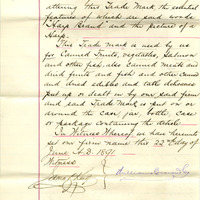 this Trade Mark, the essential
features of which are said words
Harp Brand and the picture of a
Harp.
This Trade Mark is used by us
for Canned Fruits, vegetables, Salmon
and other fish, also canned meats and
dried fruits and fish and other canned
and dried edibles and table delicacies
put up or dealt in by our said firm
and said Trade Mark is put on or
around the can, jar, bottle, case
or package containing the article.
In Witness Whereof we have hereunto
set our firm name this 22d day of
June A.D. 1891.
Witness